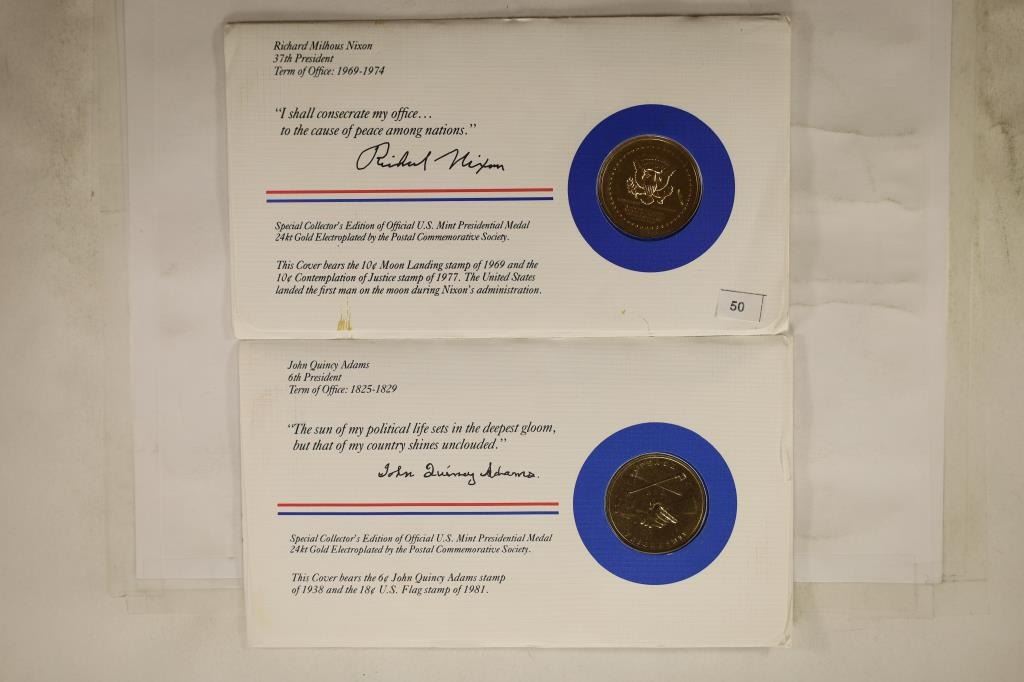 Richard Milhous Nixon
37th President
Term of Office: 1969-1974
“I shall consecrate my office…
to the cause of peace among nations.”
Richard Nixon
Special Collector's Edition of Official U.S. Mint Presidential Medal
24kt Gold Electroplated by the Postal Commemorative Society.
This Cover bears the 10¢ Moon Landing stamp of 1969 and the
10¢ Contemplation of Justice stamp of 1977. The United States
landed the first man on the moon during Nixon's administration.
50
John Quincy Adams
6th President
Term of Office: 1825-1829
“The sun of my political life sets in the deepest gloom,
but that of my country shines unclouded.”
John Quincy Adams.
Special Collector's Edition of Official U.S. Mint Presidential Medal
24kt Gold Electroplated by the Postal Commemorative Society.
This Cover bears the 6¢ John Quincy Adams stamp
of 1938 and the 18¢ U.S. Flag stamp of 1981.